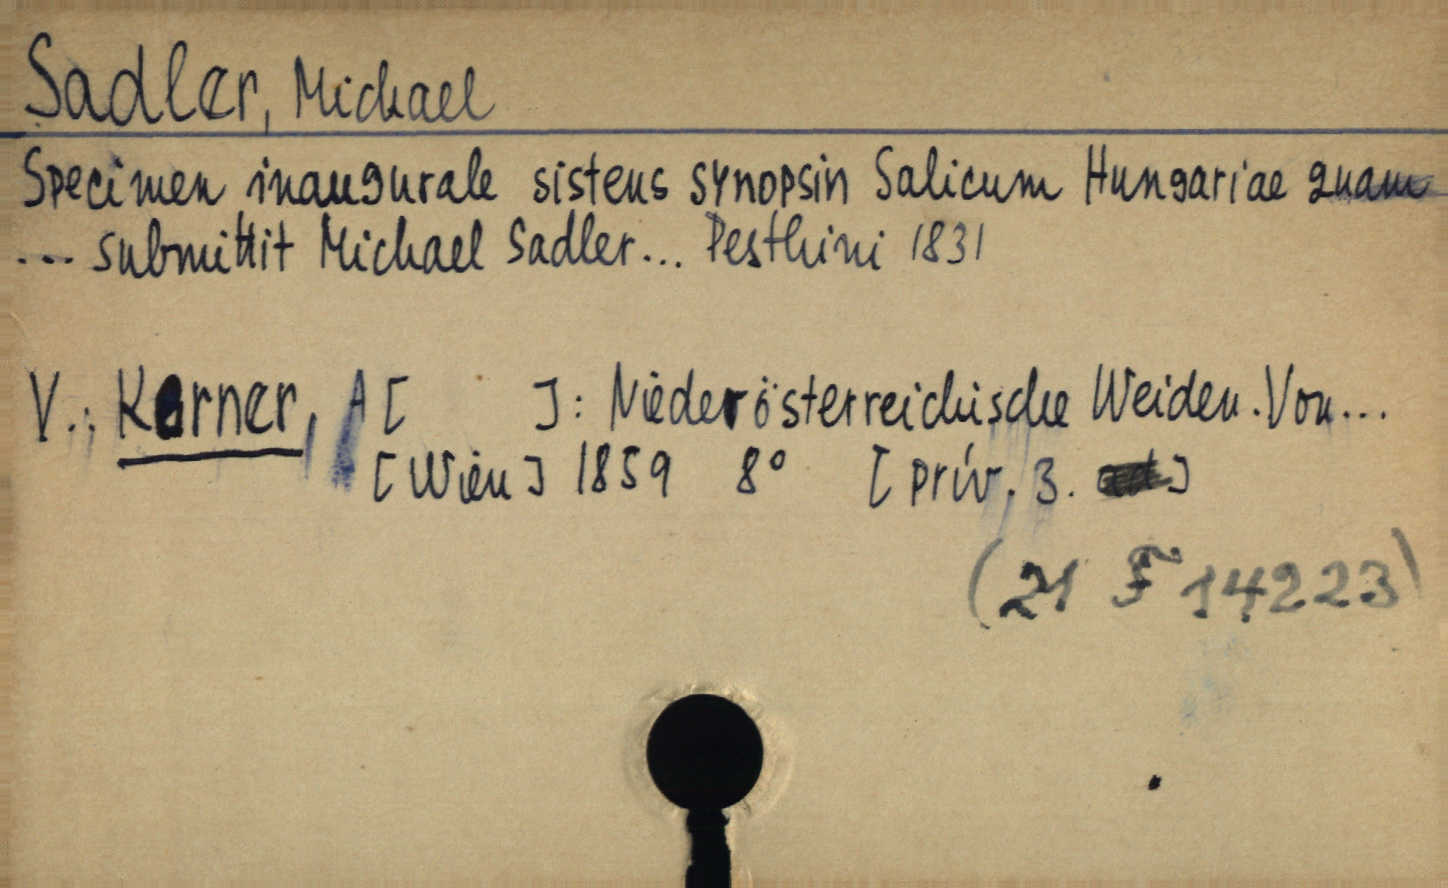 Sadler, Michael
Specimen inaugurale sistens synopsin Salicum Hungariae quam
... submittit Michael Sadler... Pesthini 1831
V.: Kerner, A [ ]: Niederösterreichische Weiden. Von...
[Wien] 1859 8° [priv. 3. ]
(21 F 14223)